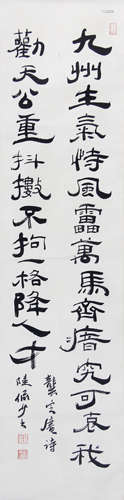 九州生氣恃風雷萬馬齊瘖究可哀我
勸天公重抖擻不拘一格降人才
龔定庵詩
陸儼少書